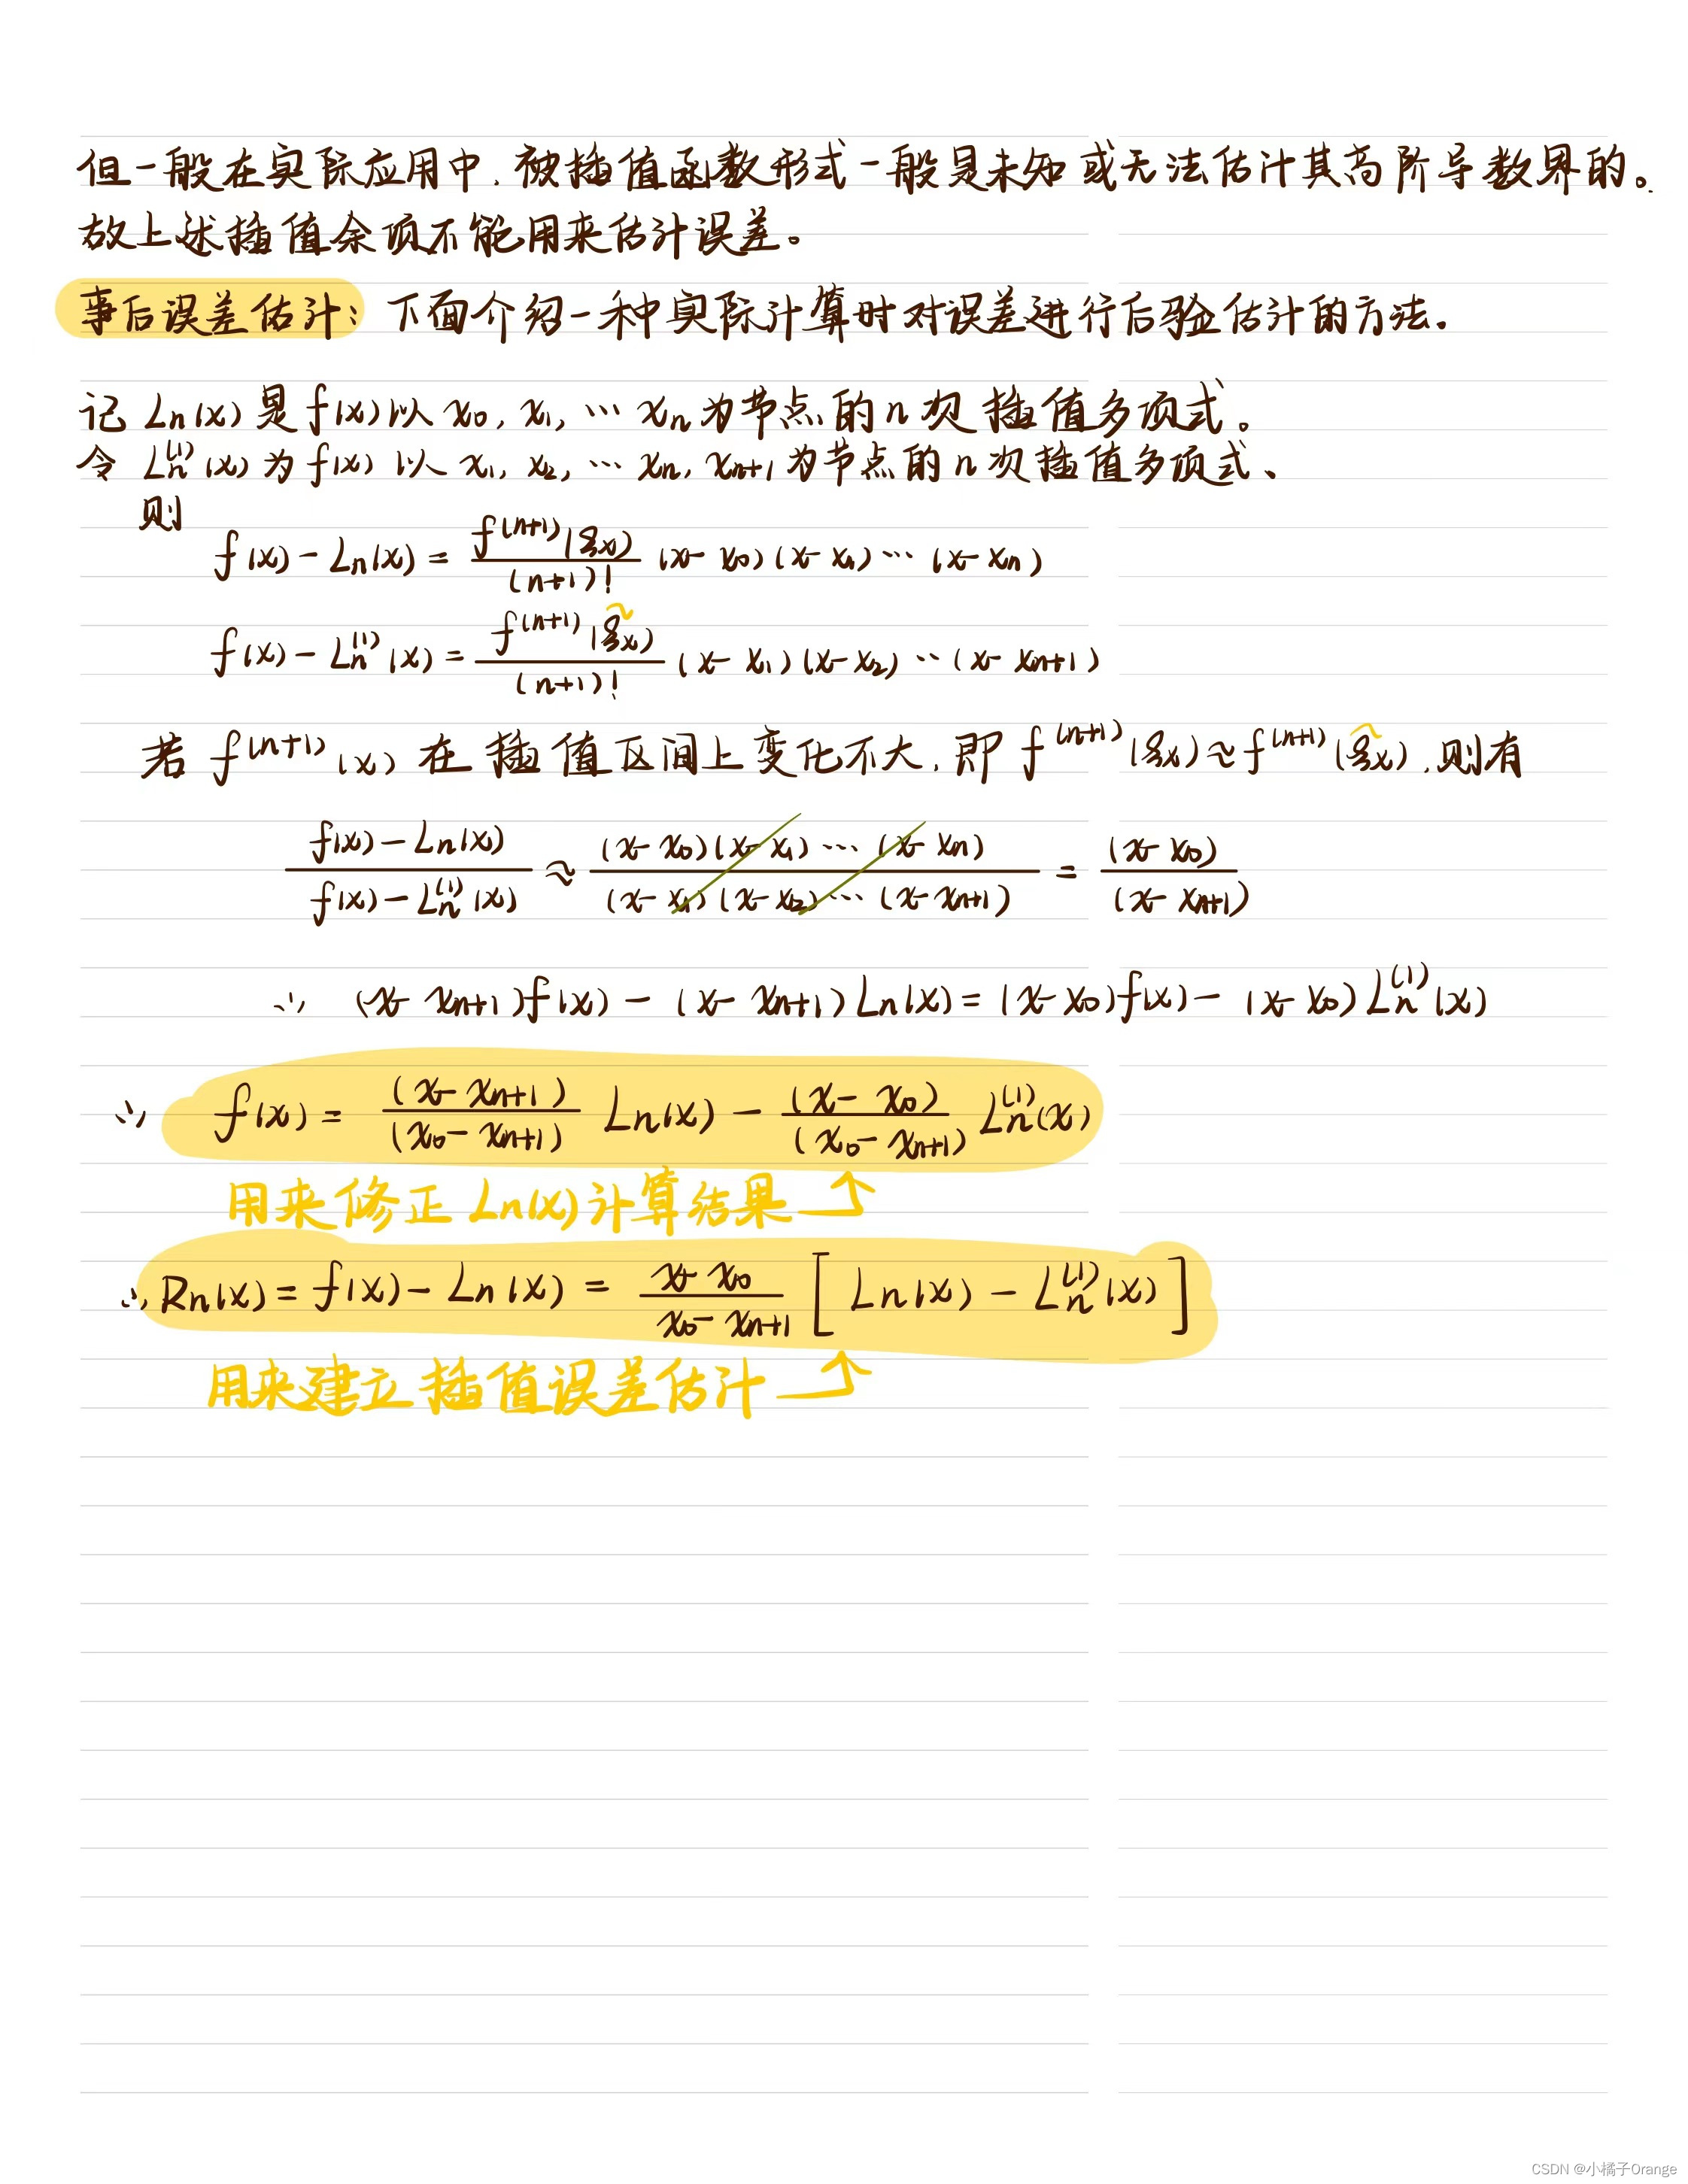 但一般在实际应用中,被插值函数形式一般是未知或无法估计其高阶导数界的。
故上述插值余项不能用来估计误差。
事后误差估计: 下面介绍一种实际计算时对误差进行后验估计的方法.
记 Ln(x) 是 f(x) 以 x₀, x₁, … xₙ 为节点的 n 次 插值多项式。
令 Lₙ⁽¹⁾(x) 为 f(x) 以 x₁, x₂, … xₙ, xₙ₊₁ 为节点的 n 次插值多项式、
则
f(x) - Ln(x) = f⁽ⁿ⁺¹⁾(ξx)/(n+1)! (x-x₀)(x-x₁)…(x-xₙ)
f(x) - Lₙ⁽¹⁾(x) = f⁽ⁿ⁺¹⁾(ξ̃x)/(n+1)! (x-x₁)(x-x₂)…(x-xₙ₊₁)
若 f⁽ⁿ⁺¹⁾(x) 在插值区间上变化不大, 即 f⁽ⁿ⁺¹⁾(ξx) ≈ f⁽ⁿ⁺¹⁾(ξ̃x), 则有
(f(x)-Ln(x))/(f(x)-Lₙ⁽¹⁾(x)) ≈ ((x-x₀)(x-x₁)…(x-xₙ))/((x-x₁)(x-x₂)…(x-xₙ₊₁)) = (x-x₀)/(x-xₙ₊₁)
∴ (x-xₙ₊₁)f(x) - (x-xₙ₊₁)Ln(x) = (x-x₀)f(x) - (x-x₀)Lₙ⁽¹⁾(x)
∴ f(x) = (x-xₙ₊₁)/(x₀-xₙ₊₁) Ln(x) - (x-x₀)/(x₀-xₙ₊₁) Lₙ⁽¹⁾(x)
用来修正 Ln(x) 计算结果
∴ Rn(x) = f(x) - Ln(x) = (x-x₀)/(x₀-xₙ₊₁) [Ln(x) - Lₙ⁽¹⁾(x)]
用来建立插值误差估计
CSDN @小橘子Orange